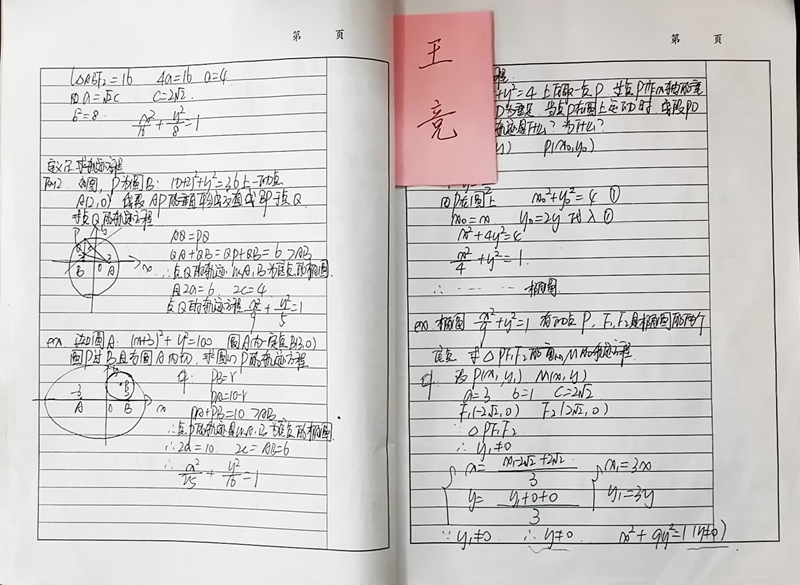 第 页
C△ABF₂=16 4a=16 a=4
由a=√2c c=2√2
b²=8 x²/16+y²/8=1
定义法 求轨迹方程
如图, P为圆B: (x+2)²+y²=36上一动点
A(2,0) 线段AP的垂直平分线交直线BP于点Q
求点Q的轨迹方程
P
Q
B 0 A x
AQ=PQ
QA+QB=QP+QB=6>AB
∴点Q的轨迹以A,B为焦点的椭圆
且2a=6 2c=4
点Q的轨迹方程x²/9+y²/5=1
ex 动圆A: (x+3)²+y²=100 圆A内一定点B(3,0)
圆P过B且与圆A内切, 求圆心P的轨迹方程
-3 3
A 0 B x
PB=r
PA=10-r
PA+PB=10>AB
∴点P的轨迹是以A,B为焦点的椭圆
∴2a=10 2c=AB=6
∴x²/25+y²/16=1
第 页
王
竞
+y²=4上任取一点P 过点P作x轴的垂
D为垂足. 当点P在圆上运动时 线段PD
轨迹是什么? 为什么?
P(x₀,y₀)
因P在圆上 x₀²+y₀²=4 ①
x₀=x y₀=2y 代入①
x²+4y²=4
x²/4+y²=1
∴ 椭圆
ex 椭圆 x²/9+y²=1 有动点P, F₁,F₂是椭圆的两个
焦点 求△PF₁F₂的重心M的轨迹方程
设P(x₁,y₁) M(x,y)
a=3 b=1 c=2√2
F₁(-2√2,0) F₂(2√2,0)
∵△PF₁F₂
∴y₁≠0
x=(x₁-2√2+2√2)/3 x₁=3x
y=(y₁+0+0)/3 y₁=3y
∵y₁≠0 ∴y≠0 x²+9y²=1(y≠0)